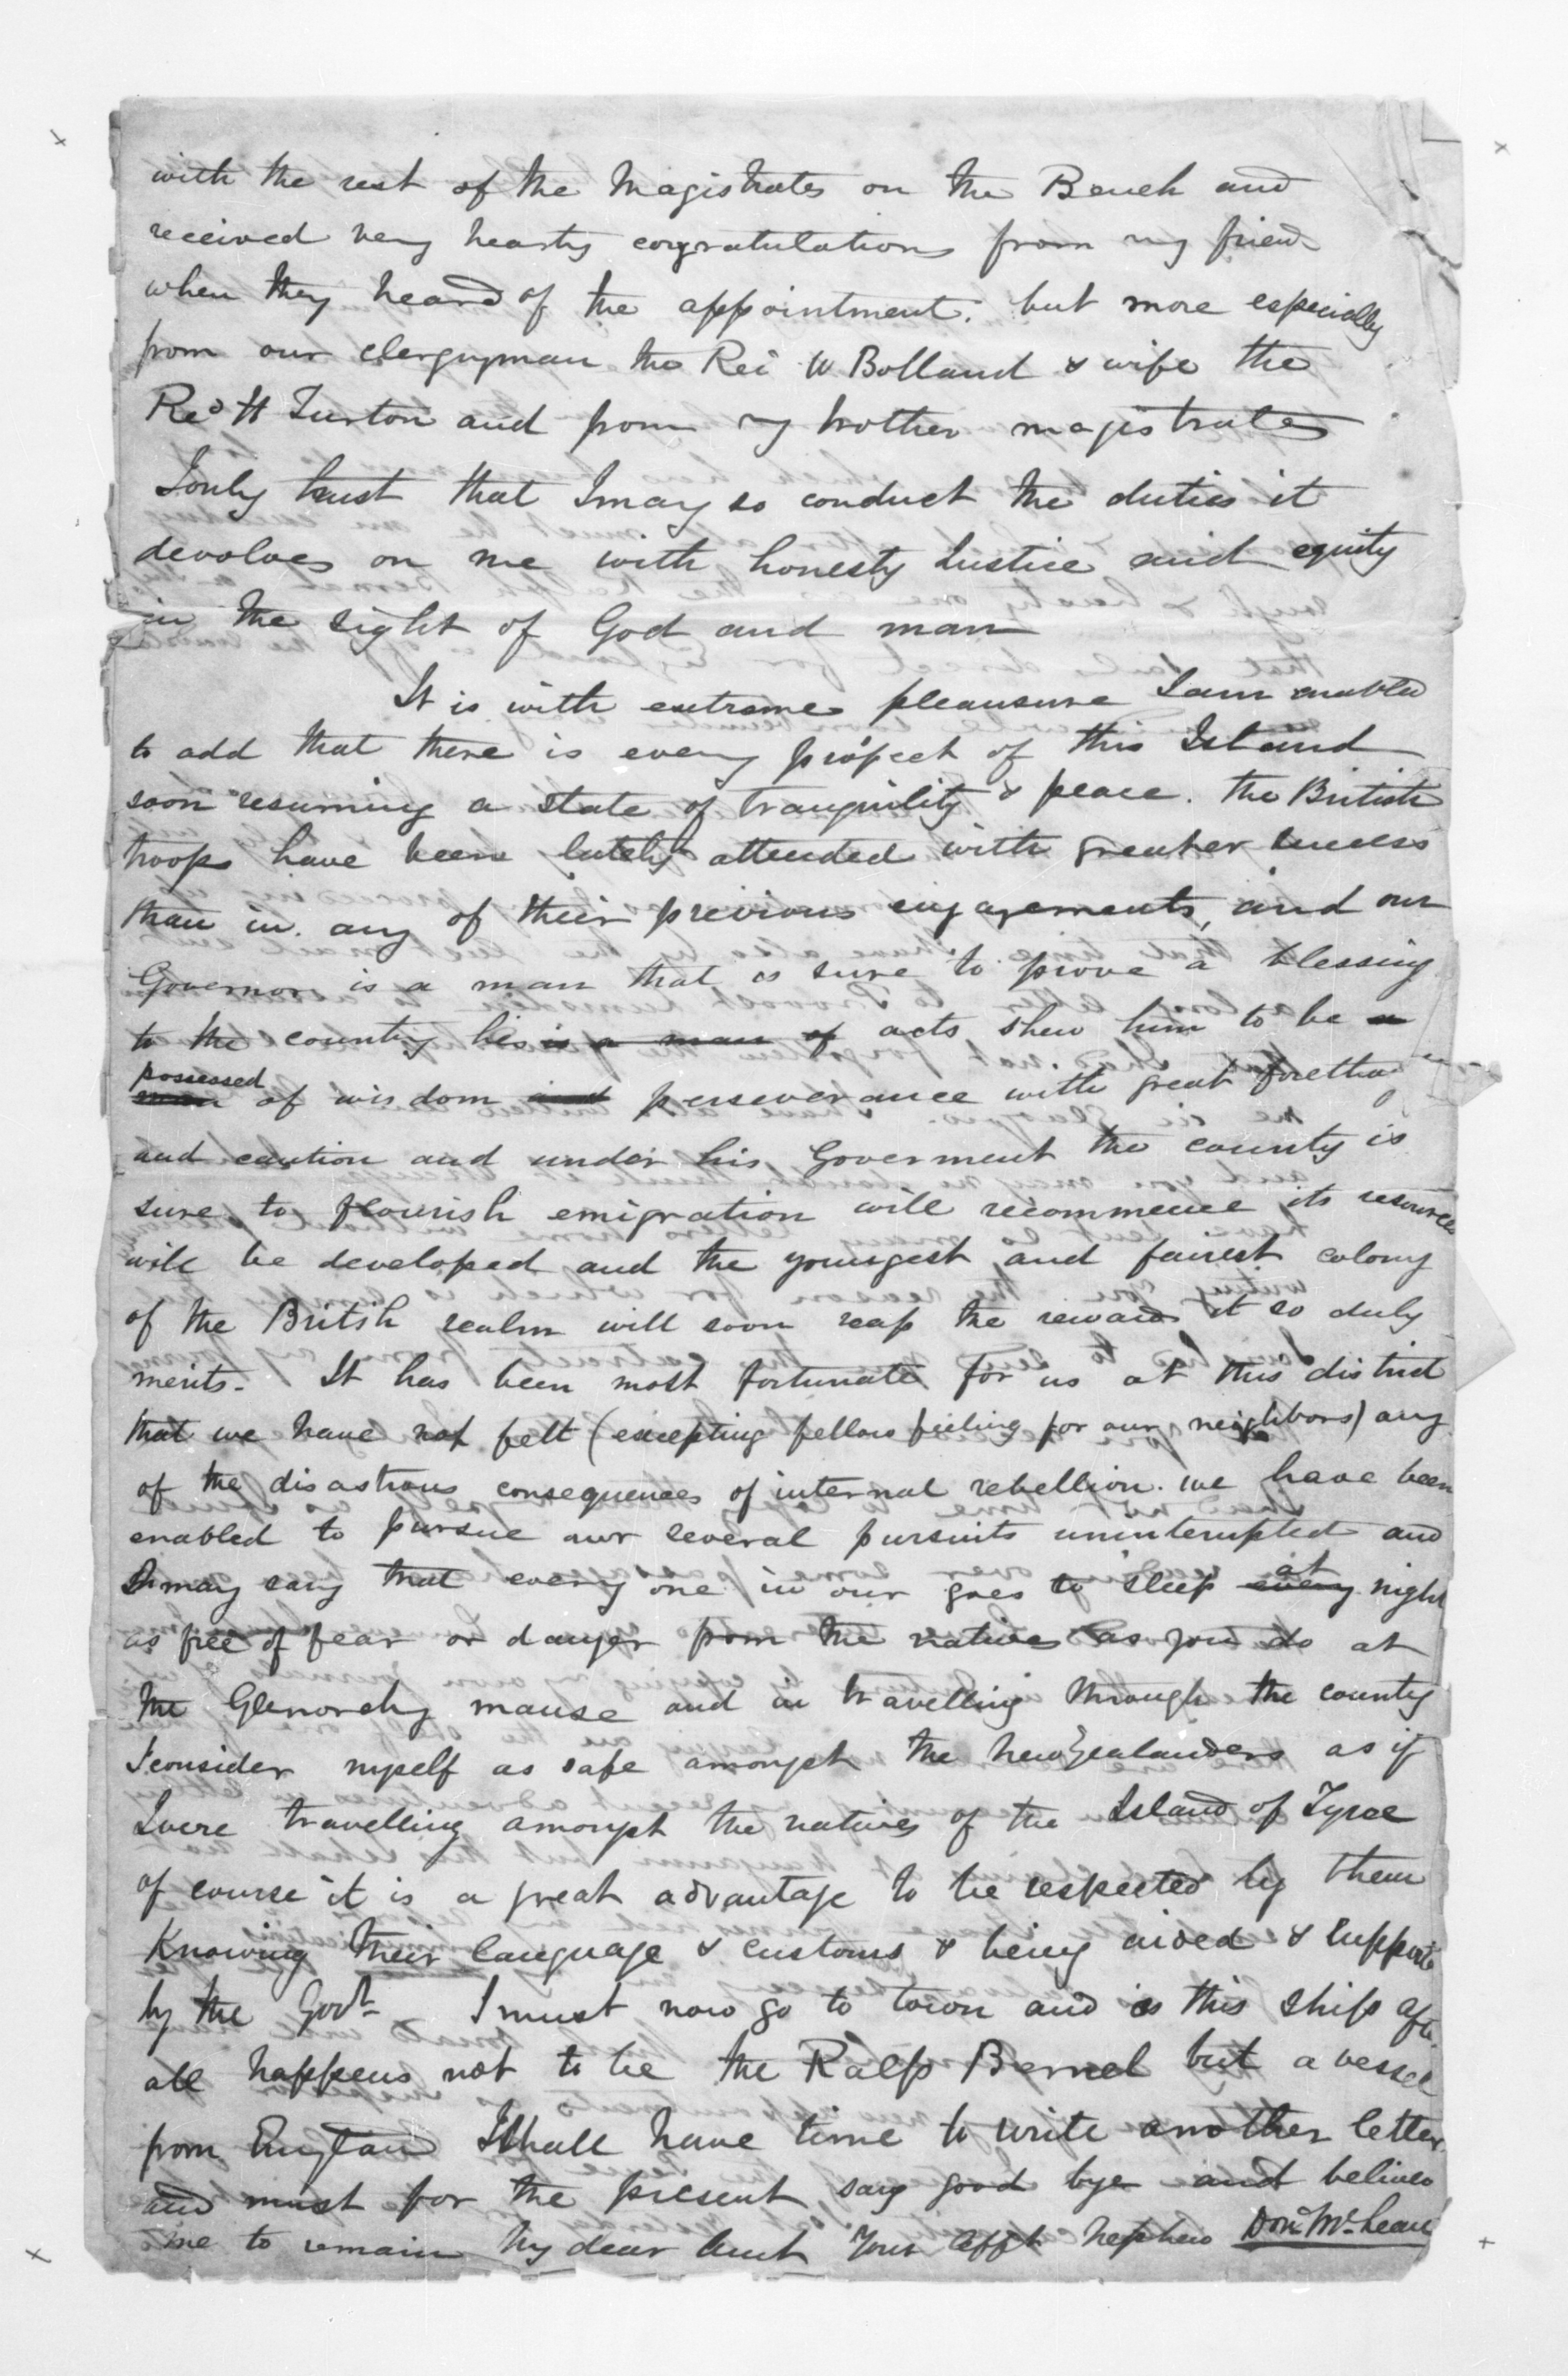 with the rest of the Magistrates on the Bench and
received very hearty congratulations from my friend
when they heard of the appointment. but more especially
from our clergyman the Rev W Bolland & wife the
Revd H Turton and from my brother magistrates
I only trust that I may so conduct the duties it
devolves on me with honesty Justice and equity
in the sight of God and man
It is with extreme pleausure I am enabled
to add that there is every prospect of this Island
soon resuming a state of tranquility & peace. the British
troops have been lately attended with greater success
than in any of their previous engagements, and our
Governor is a man that is sure to prove a blessing
to the country his is a man of acts shew him to be a
possessed
man of wisdom and perseverance with great foretho
and caution and under his Goverment the county is
sure to flourish emigration will recommence its resources
will be developed and the youngest and fairest colony
of the Britsh realm will soon reap the reward it so duly
merits. It has been most fortunate for us at this district
that we have not felt (excepting fellow feeling for our neighbors) any
of the disastrous consequences of internal rebellion. we have been
enabled to pursue our several pursuits uninterupted and
I may say that every one in our goes to sleep every at night
as free of fear or danger from the natives as you do at
the Glenorchy manse and in travelling through the county
I consider myself as safe amongst the New Zealanders as if
I were travelling amongst the natives of the Island of Tyree
of course it is a great advantage to be respected by them
Knowing their language & customs & being aided & supporte
by the Govt. I must now go to town and as this ship afte
all happens not to be the Ralp Bernel but a vessel
from England I shall have time to write another letter
and must for the present say good bye and believe
me to remain My dear Aunt Your afft Nephew Don. McLean